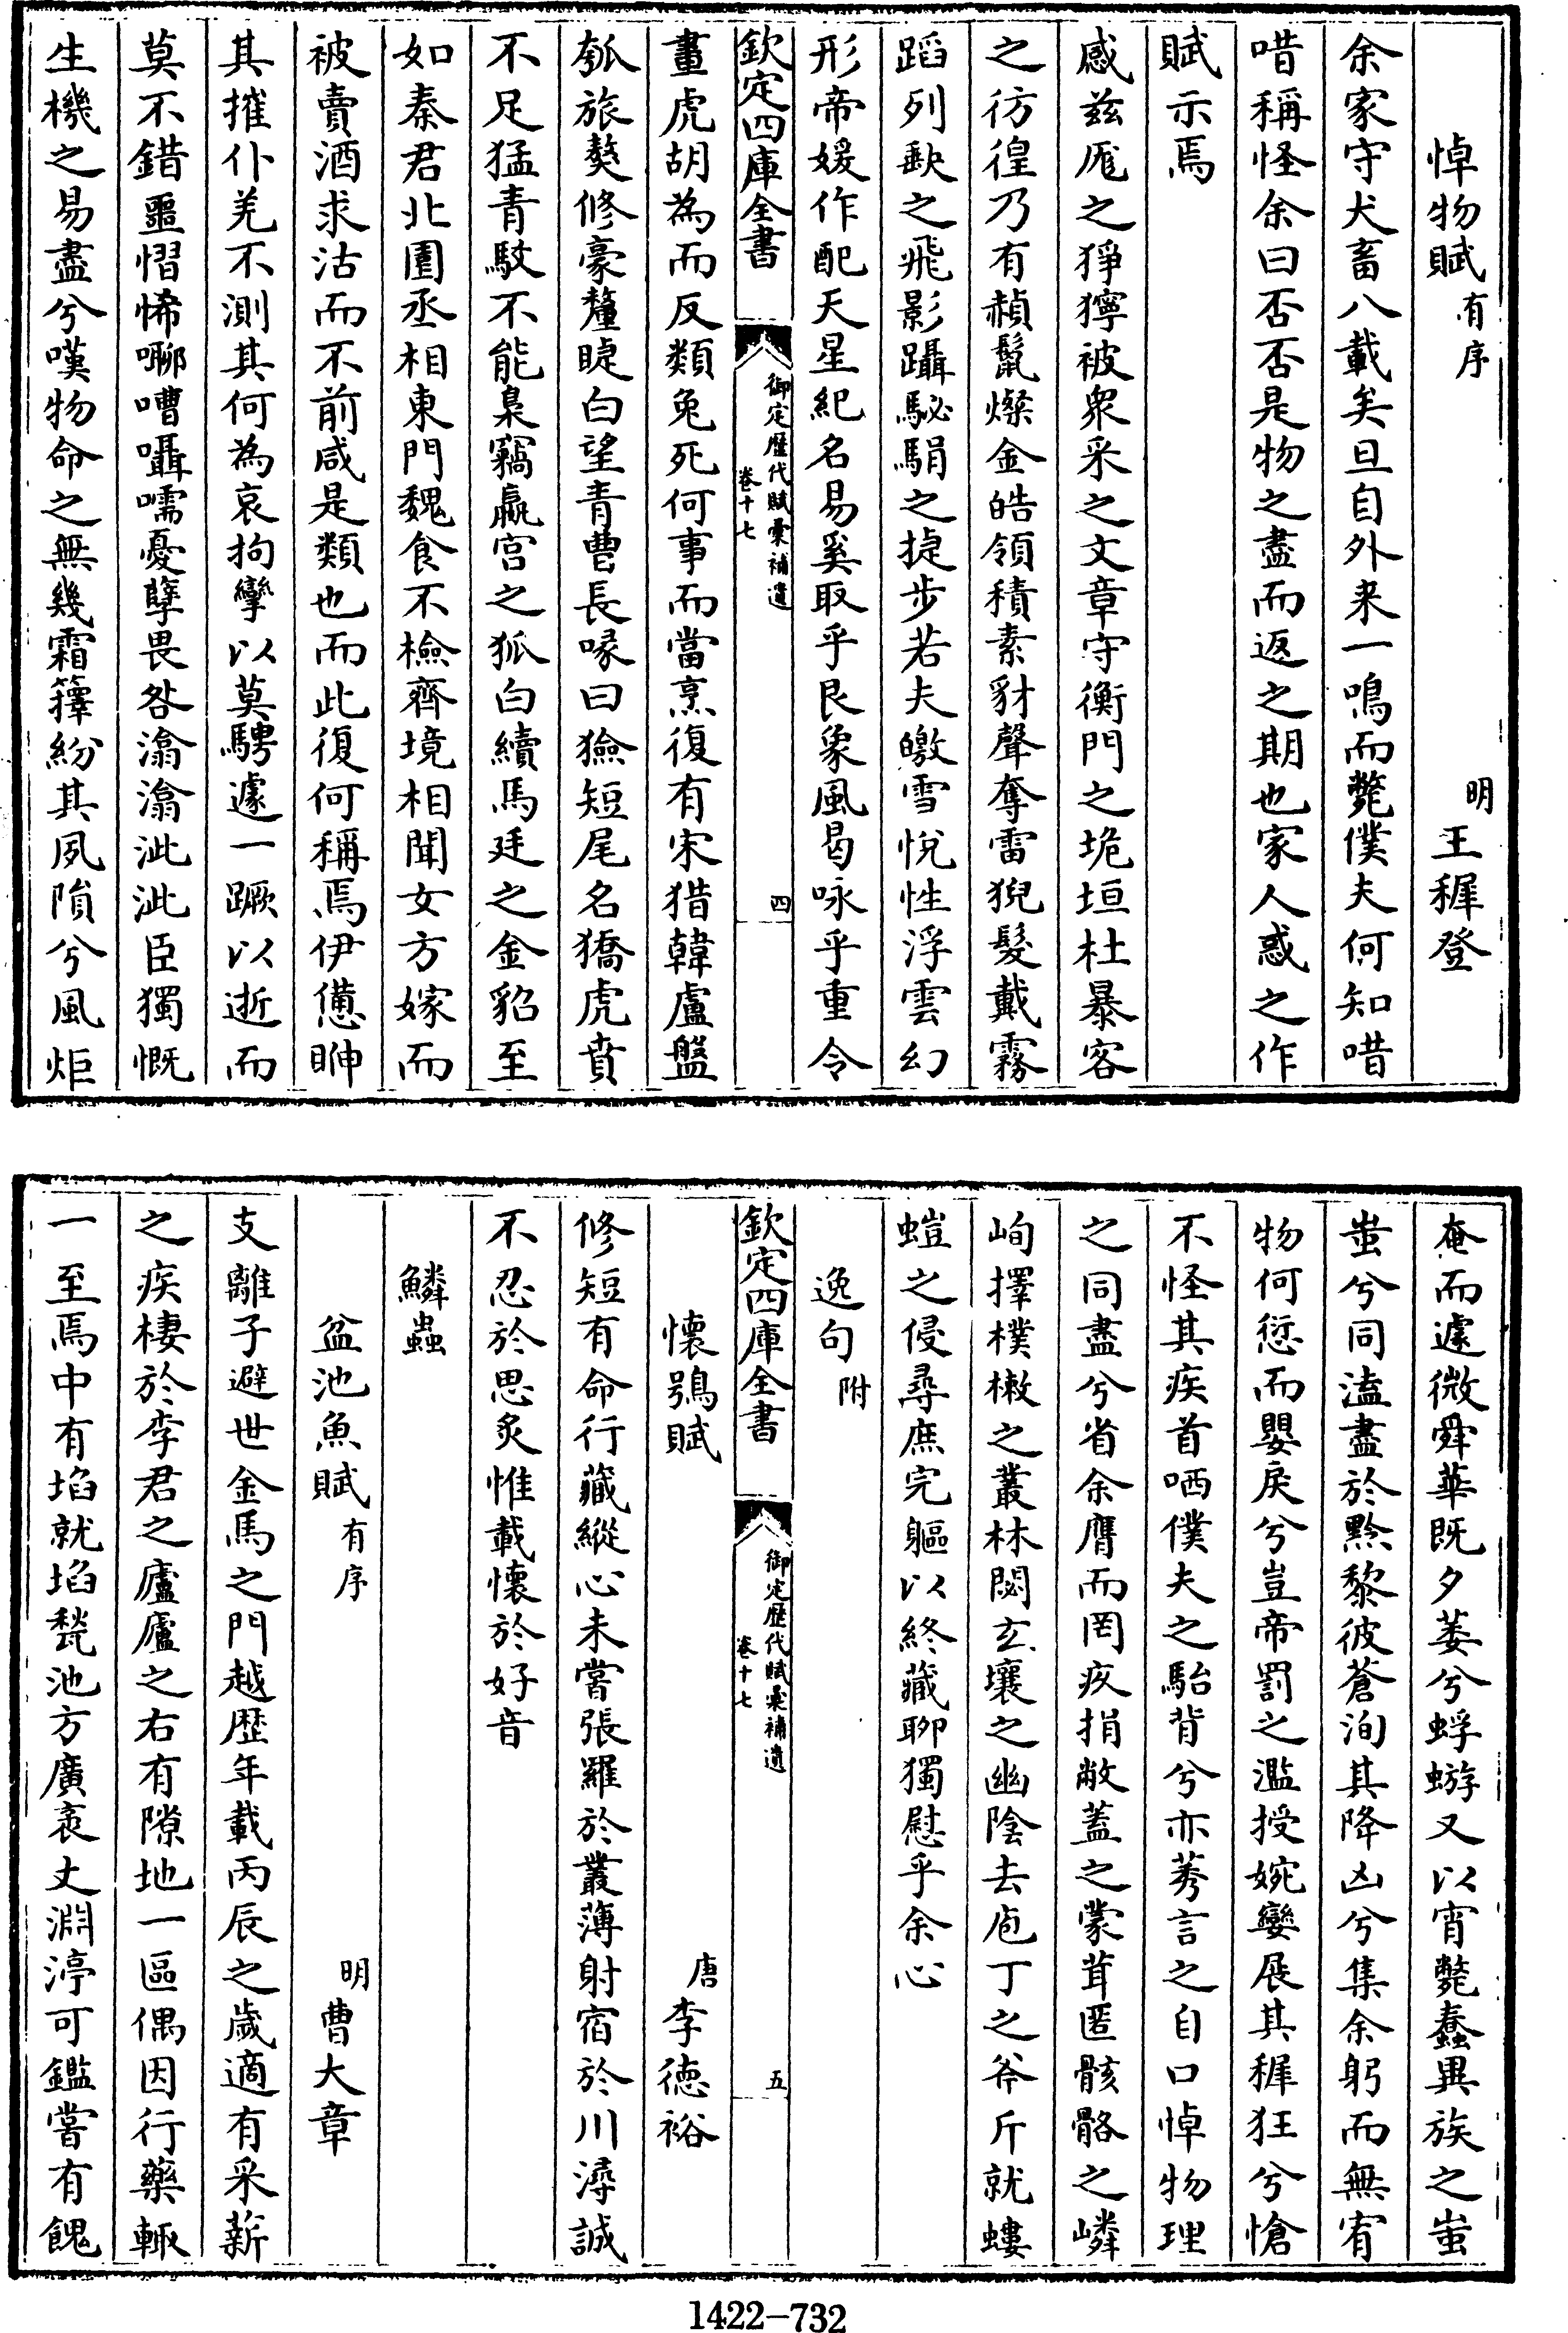 悼物賦有序 明王穉登
余家守犬畜八載矣旦自外來一鳴而斃僕夫何知唶
唶稱怪余曰否否是物之盡而返之期也家人惑之作
賦示焉
感茲厖之猙獰被衆采之文章守衡門之垝垣杜暴客
之彷徨乃有赬鬣燦金皓領積素豺聲奪雷猊髮戴霧
蹈列缺之飛影躡駜駽之捷步若夫皦雪悅性浮雲幻
形帝媛作配天星紀名易奚取乎艮象風曷咏乎重令
欽定四庫全書 御定歷代賦彙補遺 卷十七 四
畫虎胡為而反類兔死何事而當烹復有宋猎韓盧盤
瓠旅獒修豪氂睫白望青曹長喙曰獫短尾名獢虎賁
不足猛青駮不能梟竊嬴宮之狐白續馬廷之金貂至
如秦君北園丞相東門魏食不檢齊境相聞女方嫁而
被賣酒求沽而不前咸是類也而此復何稱焉伊憊眒
其摧仆羌不測其何為哀拘攣以莫騁遽一蹶以逝而
莫不錯噩慴悕嘐嘈囁嚅憂孽畏咎潝潝泚泚臣獨慨
生機之易盡兮嘆物命之無幾霜籜紛其夙隕兮風炬
奄而遽微舜華既夕萎兮蜉蝣又以宵斃蠢異族之蚩
蚩兮同溘盡於黔黎彼蒼洵其降凶兮集余躬而無宥
物何愆而嬰戾兮豈帝罰之濫授婉孌展其穉狂兮愴
不怪其疾首哂僕夫之駘背兮亦莠言之自口悼物理
之同盡兮省余膺而罔疚捐敝蓋之蒙茸匿骸骼之嶙
峋擇樸樕之叢林閟玄壤之幽陰去庖丁之斧斤就螻
螘之侵尋庶完軀以終藏聊獨慰乎余心
逸句附
欽定四庫全書 御定歷代賦彙補遺 卷十七 五
懷鴞賦 唐李德裕
修短有命行藏縱心未嘗張羅於叢薄射宿於川潯誠
不忍於思炙惟載懷於好音
鱗蟲
盆池魚賦有序 明曹大章
支離子避世金馬之門越歷年載丙辰之歲適有采薪
之疾棲於李君之廬廬之右有隙地一區偶因行藥輒
一至焉中有埳就埳甃池方廣袤丈淵渟可鑑嘗有餽
1422-732